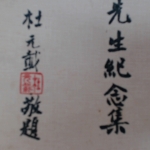 先生紀念集
杜元載
敬題